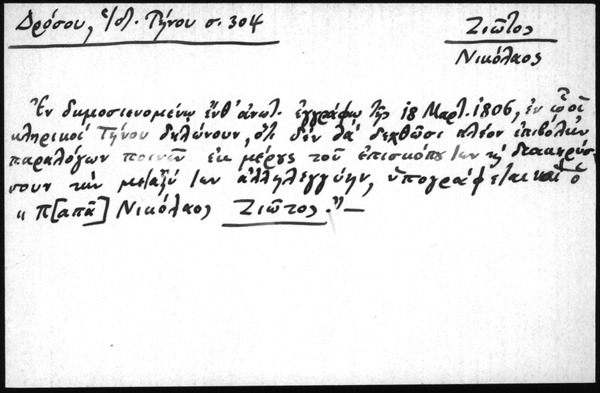 Δρόσου, Ἱστ. Τήνου σ. 304
Ζιῶτος
Νικόλαος
Ἐν δημοσιευομένῳ ἔνθ' ἀνωτ. ἐγγράφῳ τῆς 18 Μαρτ. 1806, ἐν ᾧ οἱ
κληρικοί Τήνου δηλώνουν, ὅτι δέν θά δεχθῶσι πλέον ἐπιβολήν
παραλόγων ποινῶν ἐκ μέρους τοῦ ἐπισκόπου των κ διακηρύσ-
σουν τήν μεταξύ των ἀλληλεγγύην, ὑπογράφεται καί ὁ
« Π[απᾶ] Νικόλαος Ζιῶτος. »—